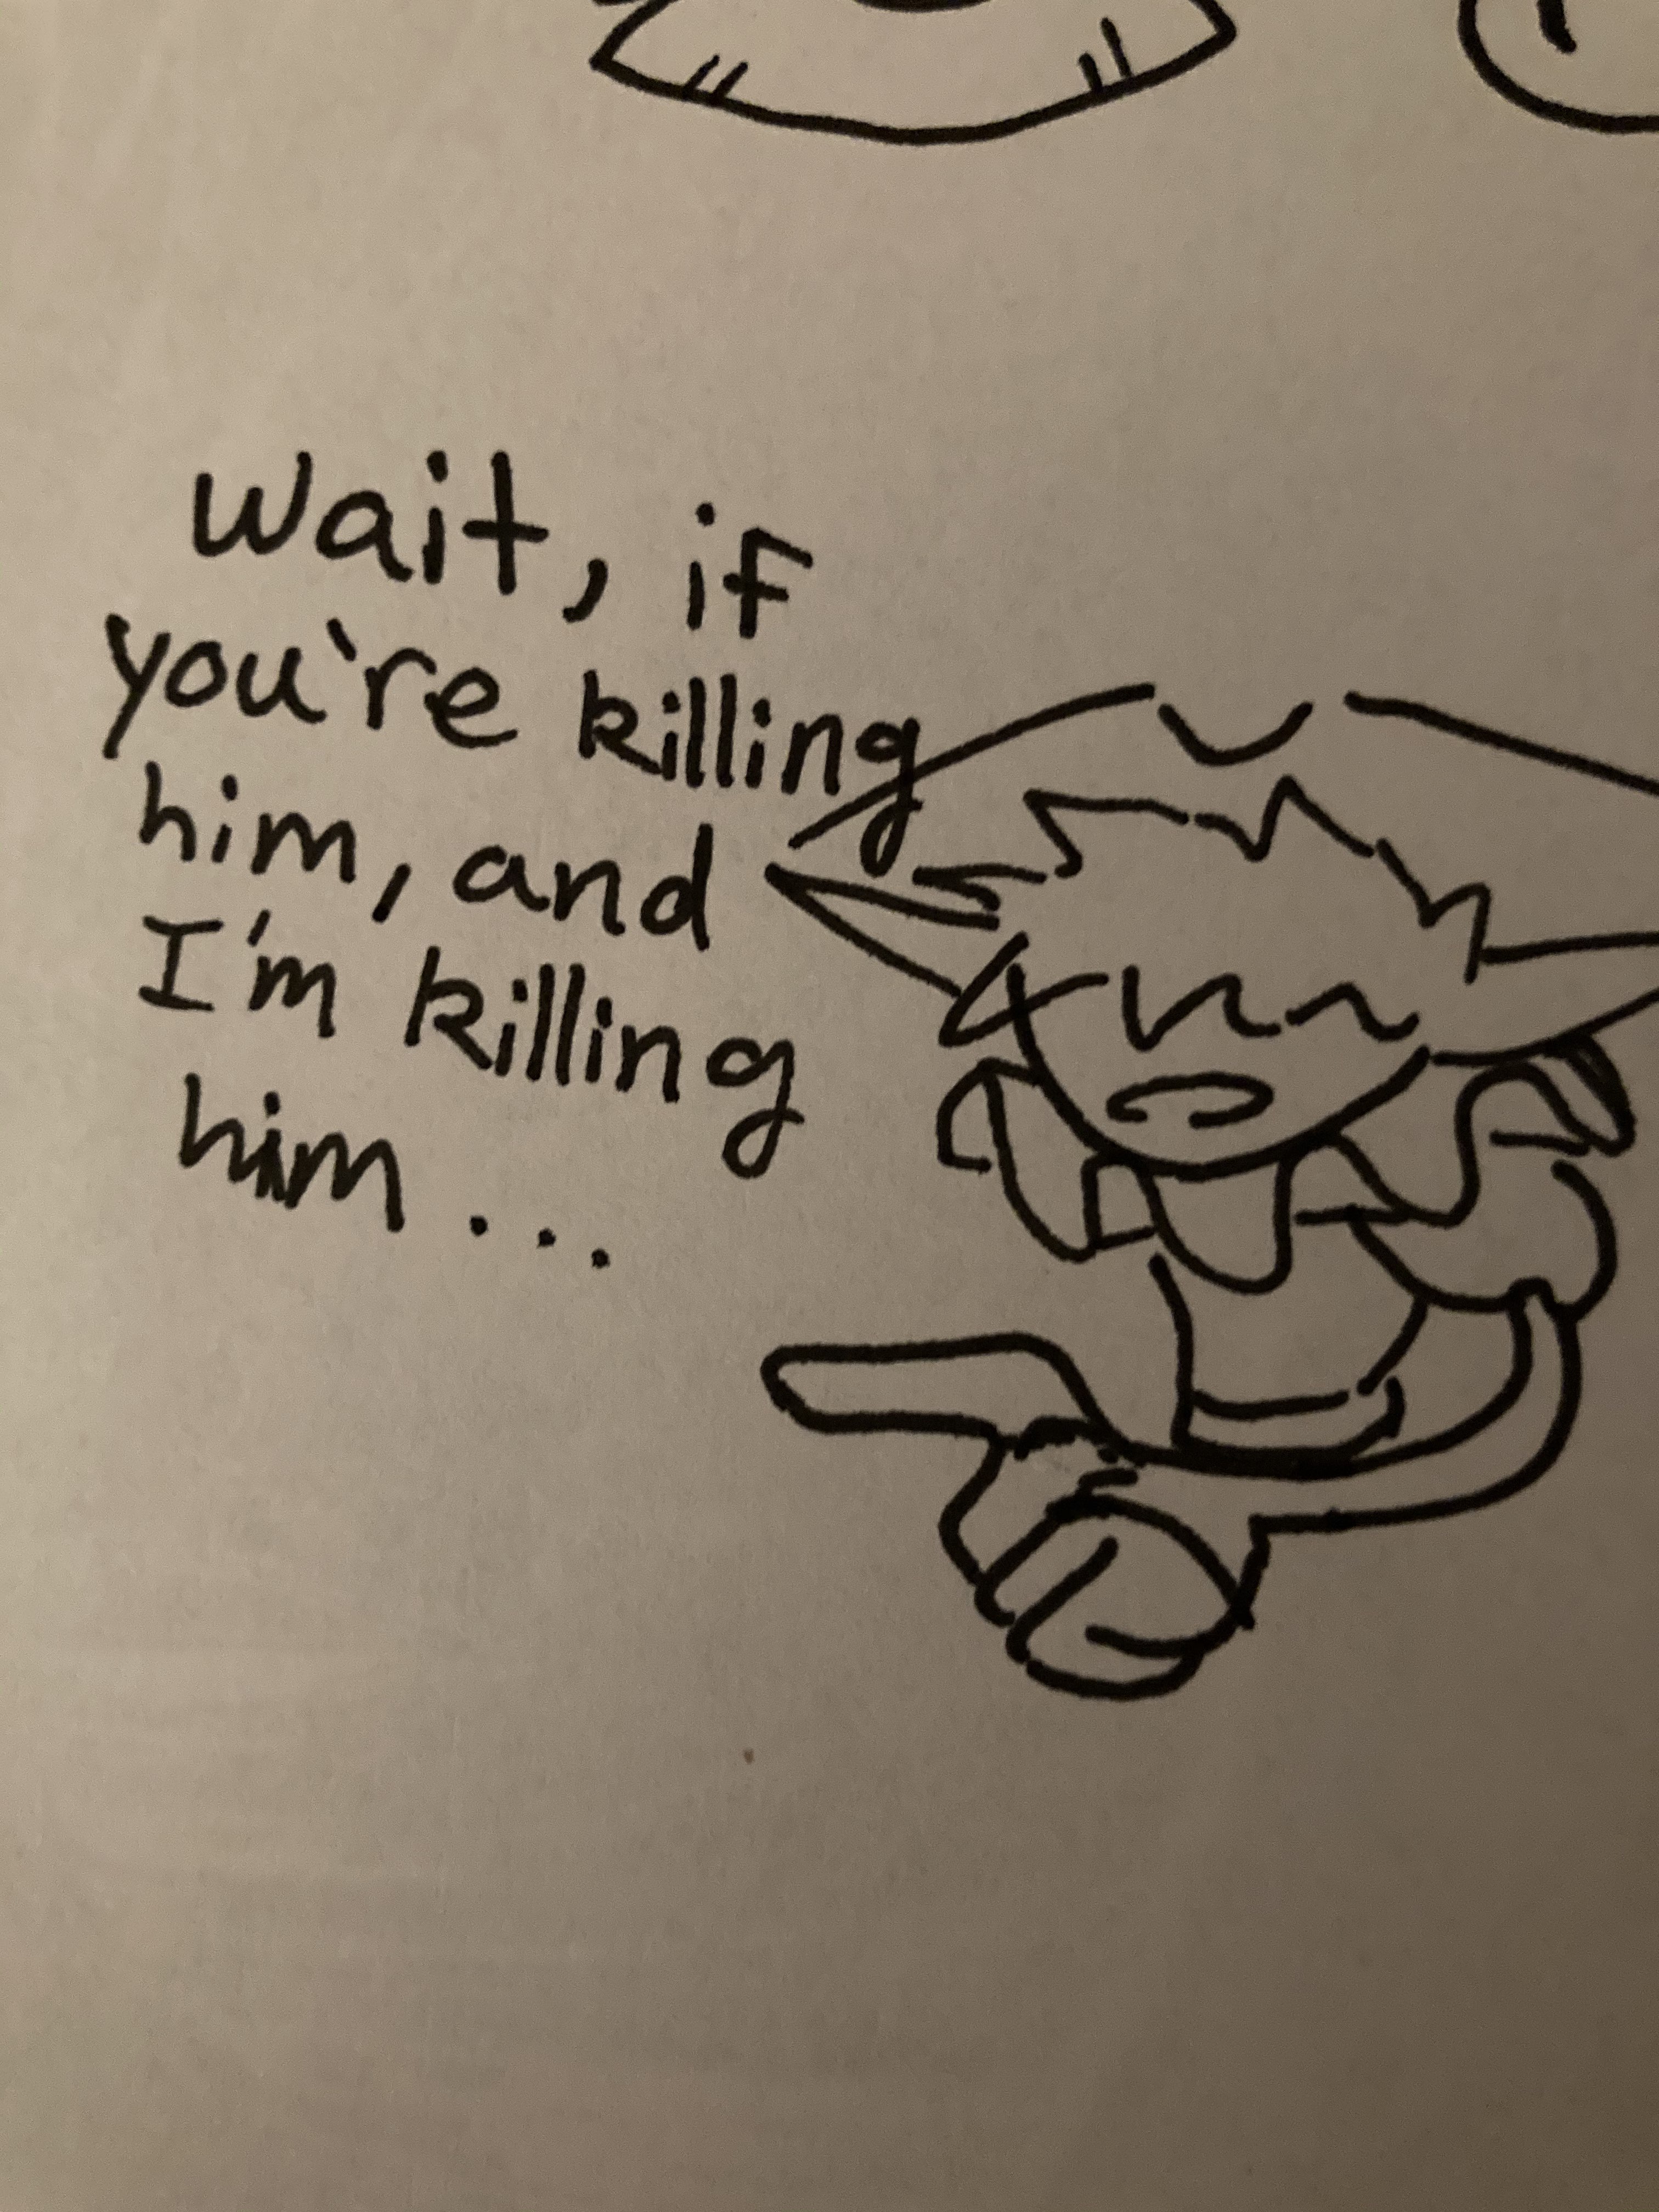 wait, if
you're killing
him, and
I'm killing
him...